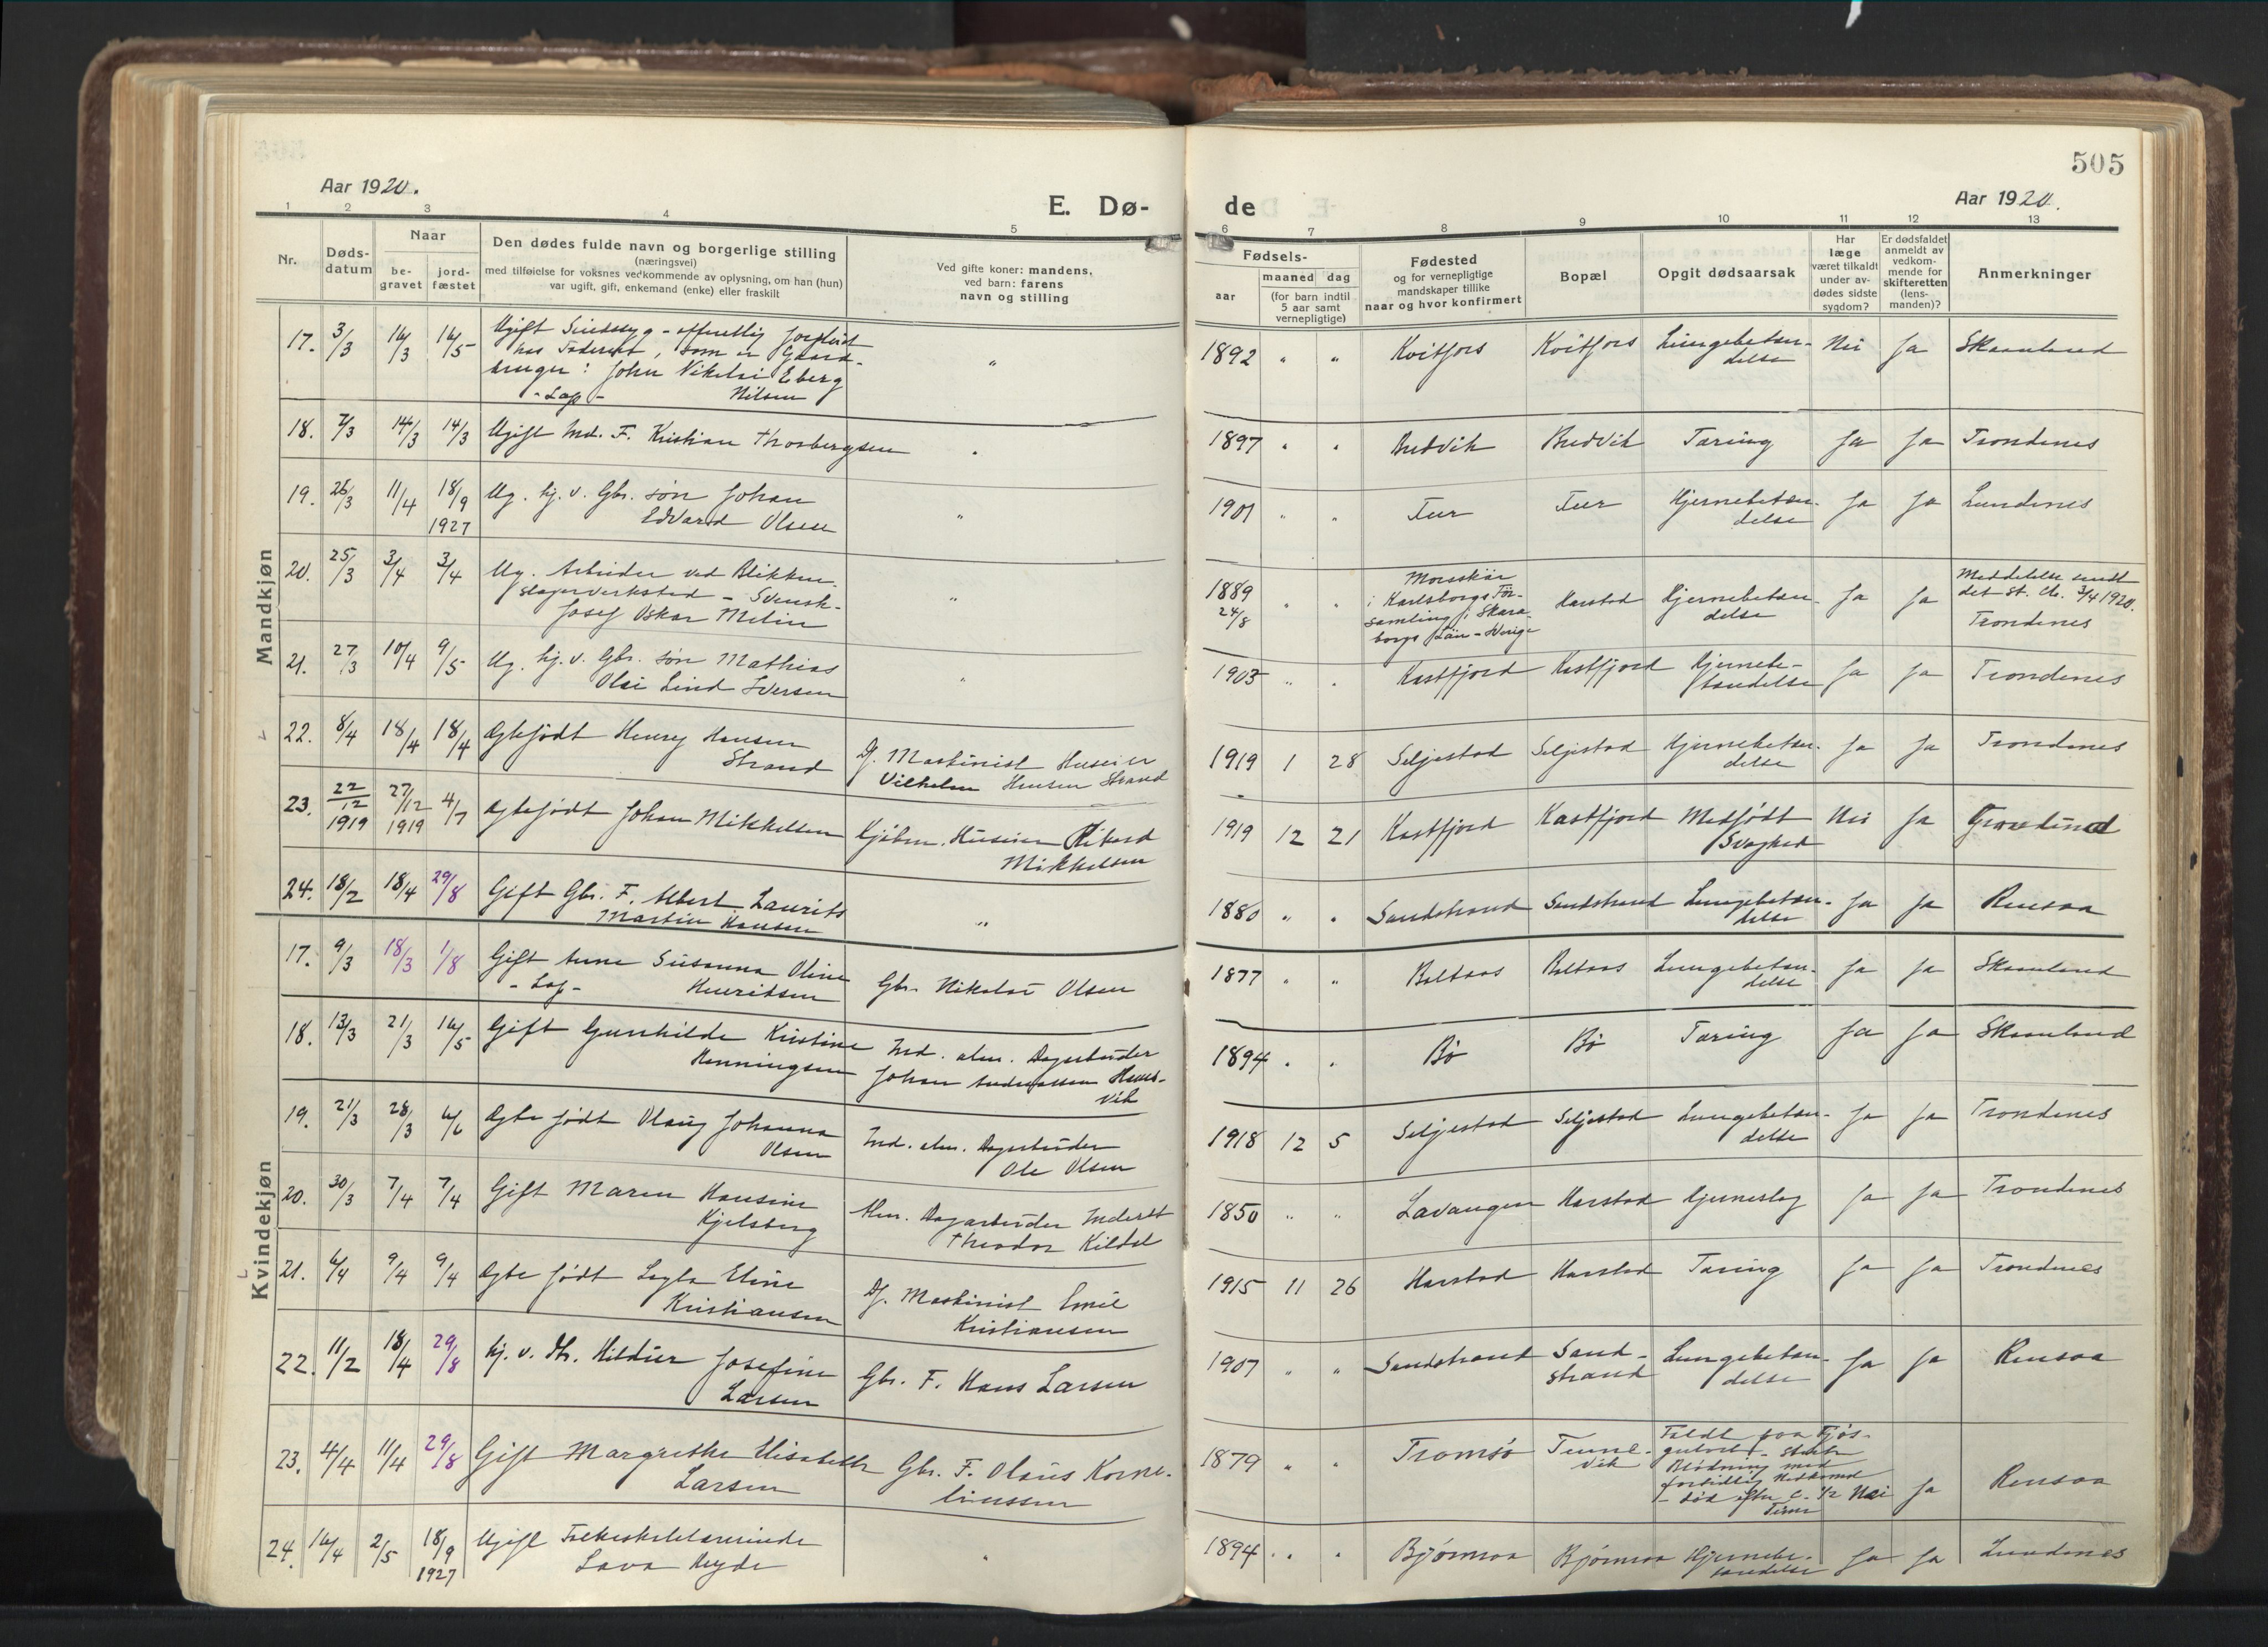 505
Aar 1920.
E. Dø-
de
Aar 1920.
1 2 3 4 5 6 7 8 9 10 11 12 13
Nr.
Døds-
datum
Naar
be-
gravet
jord-
fæstet
Den dødes fulde navn og borgerlige stilling
(næringsvei)
med tilføielse for voksnes vedkommende av oplysning, om han (hun)
var ugift, gift, enkemand (enke) eller fraskilt
Ved gifte koner: mandens,
ved barn: farens
navn og stilling
Fødsels-
aar
maaned dag
(for barn indtil
5 aar samt
vernepligtige)
Fødested
og for vernepligtige
mandskaper tillike
naar og hvor konfirmert
Bopæl
Opgit dødsaarsak
Har
læge
været tilkaldt
under av-
dødes sidste
sygdom?
Er dødsfaldet
anmeldt av
vedkom-
mende for
skifteretten
(lens-
manden)?
Anmerkninger
Mandkjøn
17. 3/3 16/3 16/5 Ugift Sindssyg - offentlig forpleiet
hos Faderen, som er Gaard-
bruger: John Nikolai Eberg
- Lap - Nilsen
" 1892 " " Kvitfors Kvitfors Lungebetæn-
delse Nei Ja Skaanland
18. 7/3 14/3 14/3 Ugift Ind. F. Kristian Thorbergsen
" 1897 " " Bredvik Bredvik Tæring Ja Ja Trondenes
19. 26/3 11/4 18/9
1927 Ug. hj. v. Gbr. søn Johan
Edvard Olsen
" 1901 " " Fur Fur Hjernebetæn-
delse Ja Ja Lundenes
20. 25/3 3/4 3/4 Ug. Arbeider ved Blikken-
slagerverksted - Svensk -
Josef Oskar Melin
" 1889
24/8 " " Morsskär
i Karlsborgs För-
samling i Skara-
borgs Län - Sverige
Harstad Hjernebetæn-
delse Ja Ja Meddelelse sendt
det st. Cb. 3/4 1920.
Trondenes
21. 27/3 10/4 9/5 Ug. hj. v. Gbr. søn Mathias
Olai Lind Iversen
" 1903 " " Kastfjord Kastfjord Hjernebe-
tændelse Ja Ja Trondenes
22. 8/4 18/4 18/4 Ægtefødt Henry Hansen
Strand
Df. Maskinist Huseier
Vilhelm Hansen Strand
1919 1 28 Seljestad Seljestad Hjernebetæn-
delse Ja Ja Trondenes
23. 22/12
1919 27/12
1919 4/7 Ægtefødt Johan Mikkelsen
Kjøbm. Huseier Rikard
Mikkelsen
1919 12 21 Kastfjord Kastfjord Medfødt
Svaghed Nei Ja Trondenes
24. 18/2 18/4 29/8 Gift Gbr. F. Albert Laurits
Martin Hansen
" 1880 " " Sandstrand Sandstrand Lungebetæn-
delse Ja Ja Rensaa
Kvindekjøn
17. 9/3 18/3 1/8 Gift Anne Susanna Oline
- Lap - Henriksen
Gbr. Nikolai Olsen
1877 " " Boltaas Boltaas Lungebetæn-
delse Ja Ja Skaanland
18. 13/3 21/3 16/5 Gift Gunhilde Kristine
Henningsen
Ind. alm. Dagarbeider
Johan Andreassen Hans-
vik
1894 " " Bø Bø Tæring Ja Ja Skaanland
19. 21/3 28/3 6/6 Ægtefødt Olaug Johanna
Olsen
Ind. alm. Dagarbeider
Ole Olsen
1918 12 5 Seljestad Seljestad Lungebetæn-
delse Ja Ja Trondenes
20. 30/3 7/4 7/4 Gift Maren Hansine
Kjelsberg
Alm. Dagarbeider Inderst
Theodor Kildal
1850 " " Lavangen Harstad Hjerneslag Ja Ja Trondenes
21. 6/4 9/4 9/4 Ægtefødt Layla Eline
Kristiansen
Df. Maskinist Emil
Kristiansen
1915 11 26 Harstad Harstad Tæring Ja Ja Trondenes
22. 11/2 18/4 29/8 hj. v. Dtr. Hildur Josefine
Larsen
Gbr. F. Hans Larsen
1907 " " Sandstrand Sand-
strand Lungebetæn-
delse Ja Ja Rensaa
23. 4/4 11/4 29/8 Gift Margrethe Elisabeth
Larsen
Gbr. F. Olaus Korne-
liussen
1879 " " Tromsø Tenne-
vik Faldt paa Fjøs-
gulvet - stærk
Blødning med
fortidlig Nedkomst
- død efter c. 1/2
Time Nei Ja Rensaa
24. 16/4 2/5 18/9
1927 Ugift Folkeskolelærerinde
Lava Myde
" 1894 " " Bjørnraa Bjørnraa Hjernebe-
tændelse Ja Ja Lundenes